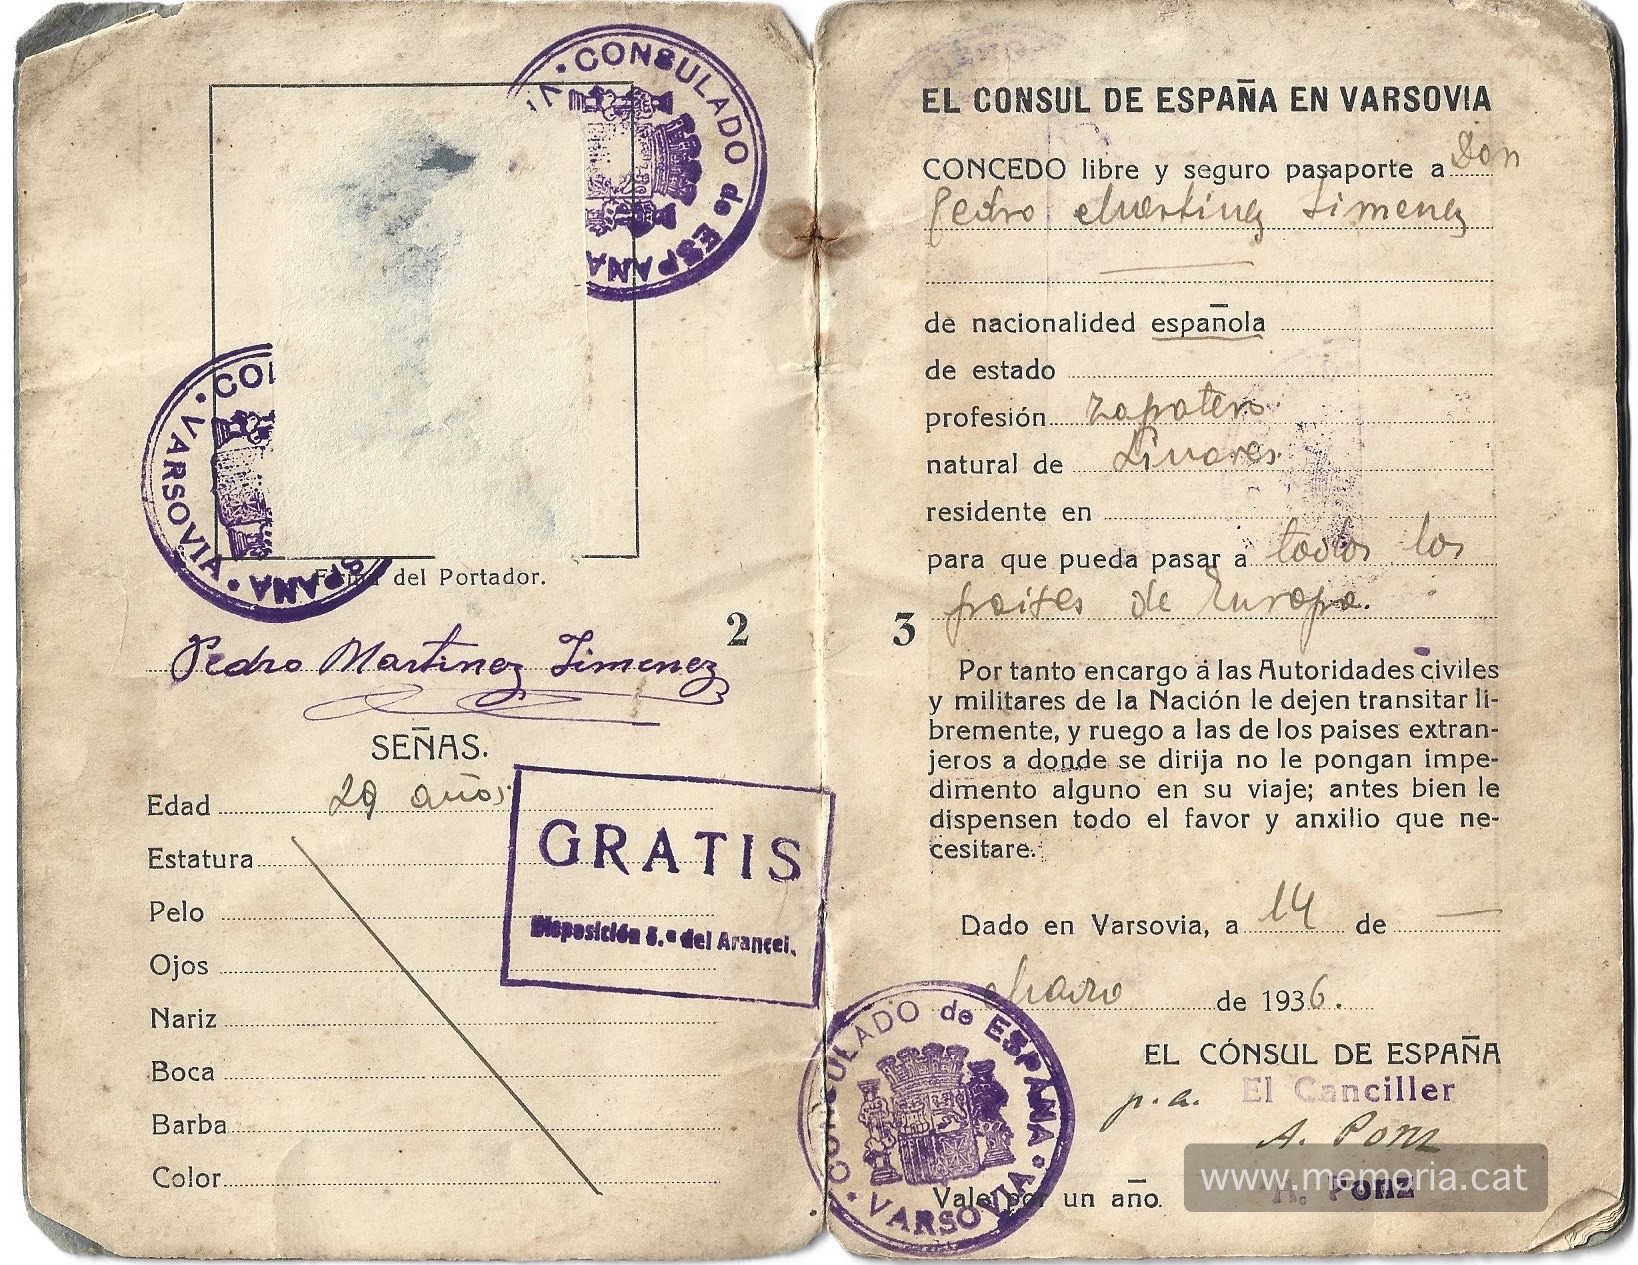 CONSULADO de ESPAÑA
CON
ESPAÑA • VARSOVIA •
Firma del Portador.
2
Pedro Martinez Jimenez
SEÑAS.
Edad 29 años
Estatura
Pelo
Ojos
Nariz
Boca
Barba
Color
GRATIS
Disposición 5.ª del Arancel.
EL CONSUL DE ESPAÑA EN VARSOVIA
CONCEDO libre y seguro pasaporte a Don
Pedro Martinez Jimenez
de nacionalided española
de estado
profesión zapatero
natural de Linares
residente en
para que pueda pasar a todos los
paises de Europa.
3
Por tanto encargo á las Autoridades civiles
y militares de la Nación le dejen transitar li-
bremente, y ruego a las de los paises extran-
jeros a donde se dirija no le pongan impe-
dimento alguno en su viaje; antes bien le
dispensen todo el favor y anxilio que ne-
cesitare.
Dado en Varsovia, a 14 de —
Marzo de 1936.
EL CÓNSUL DE ESPAÑA
p.a. El Canciller
A. Ponz
Vale por un año. A. Ponz
• CONSULADO de ESPAÑA • VARSOVIA
www.memoria.cat